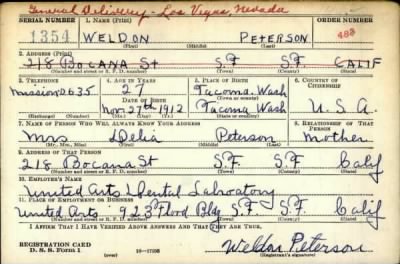 General Delivery - Las Vegas, Nevada
SERIAL NUMBER 1. NAME (Print) ORDER NUMBER
1354 WELDON PETERSON 488
(First) (Middle) (Last)
2. ADDRESS (Print)
218 BOCANA St S.F S.F CALIF
(Number and street or R. F. D. number) (Town) (County) (State)
3. TELEPHONE 4. AGE IN YEARS 5. PLACE OF BIRTH 6. COUNTRY OF CITIZENSHIP
Mission 0635 27 Tacoma, Wash
DATE OF BIRTH (Town or county)
Nov. 27th 1912 Tacoma Wash U. S. A.
(Exchange) (Number) (Mo.) (Day) (Yr.) (State or country)
7. NAME OF PERSON WHO WILL ALWAYS KNOW YOUR ADDRESS 8. RELATIONSHIP OF THAT PERSON
Mrs Delia Peterson Mother
(Mr., Mrs., Miss) (First) (Middle) (Last)
9. ADDRESS OF THAT PERSON
218 Bocana St S.F. S.F. Calif
(Number and street or R. F. D. number) (Town) (County) (State)
10. EMPLOYER'S NAME
United Arts Dental Labratory
11. PLACE OF EMPLOYMENT OR BUSINESS
United Arts 923 Flood Bldg S.F. S.F. Calif
(Number and street or R. F. D. number) (Town) (County) (State)
I AFFIRM THAT I HAVE VERIFIED ABOVE ANSWERS AND THAT THEY ARE TRUE.
REGISTRATION CARD
D. S. S. Form 1 (over) Weldon Peterson
(Registrant's signature)